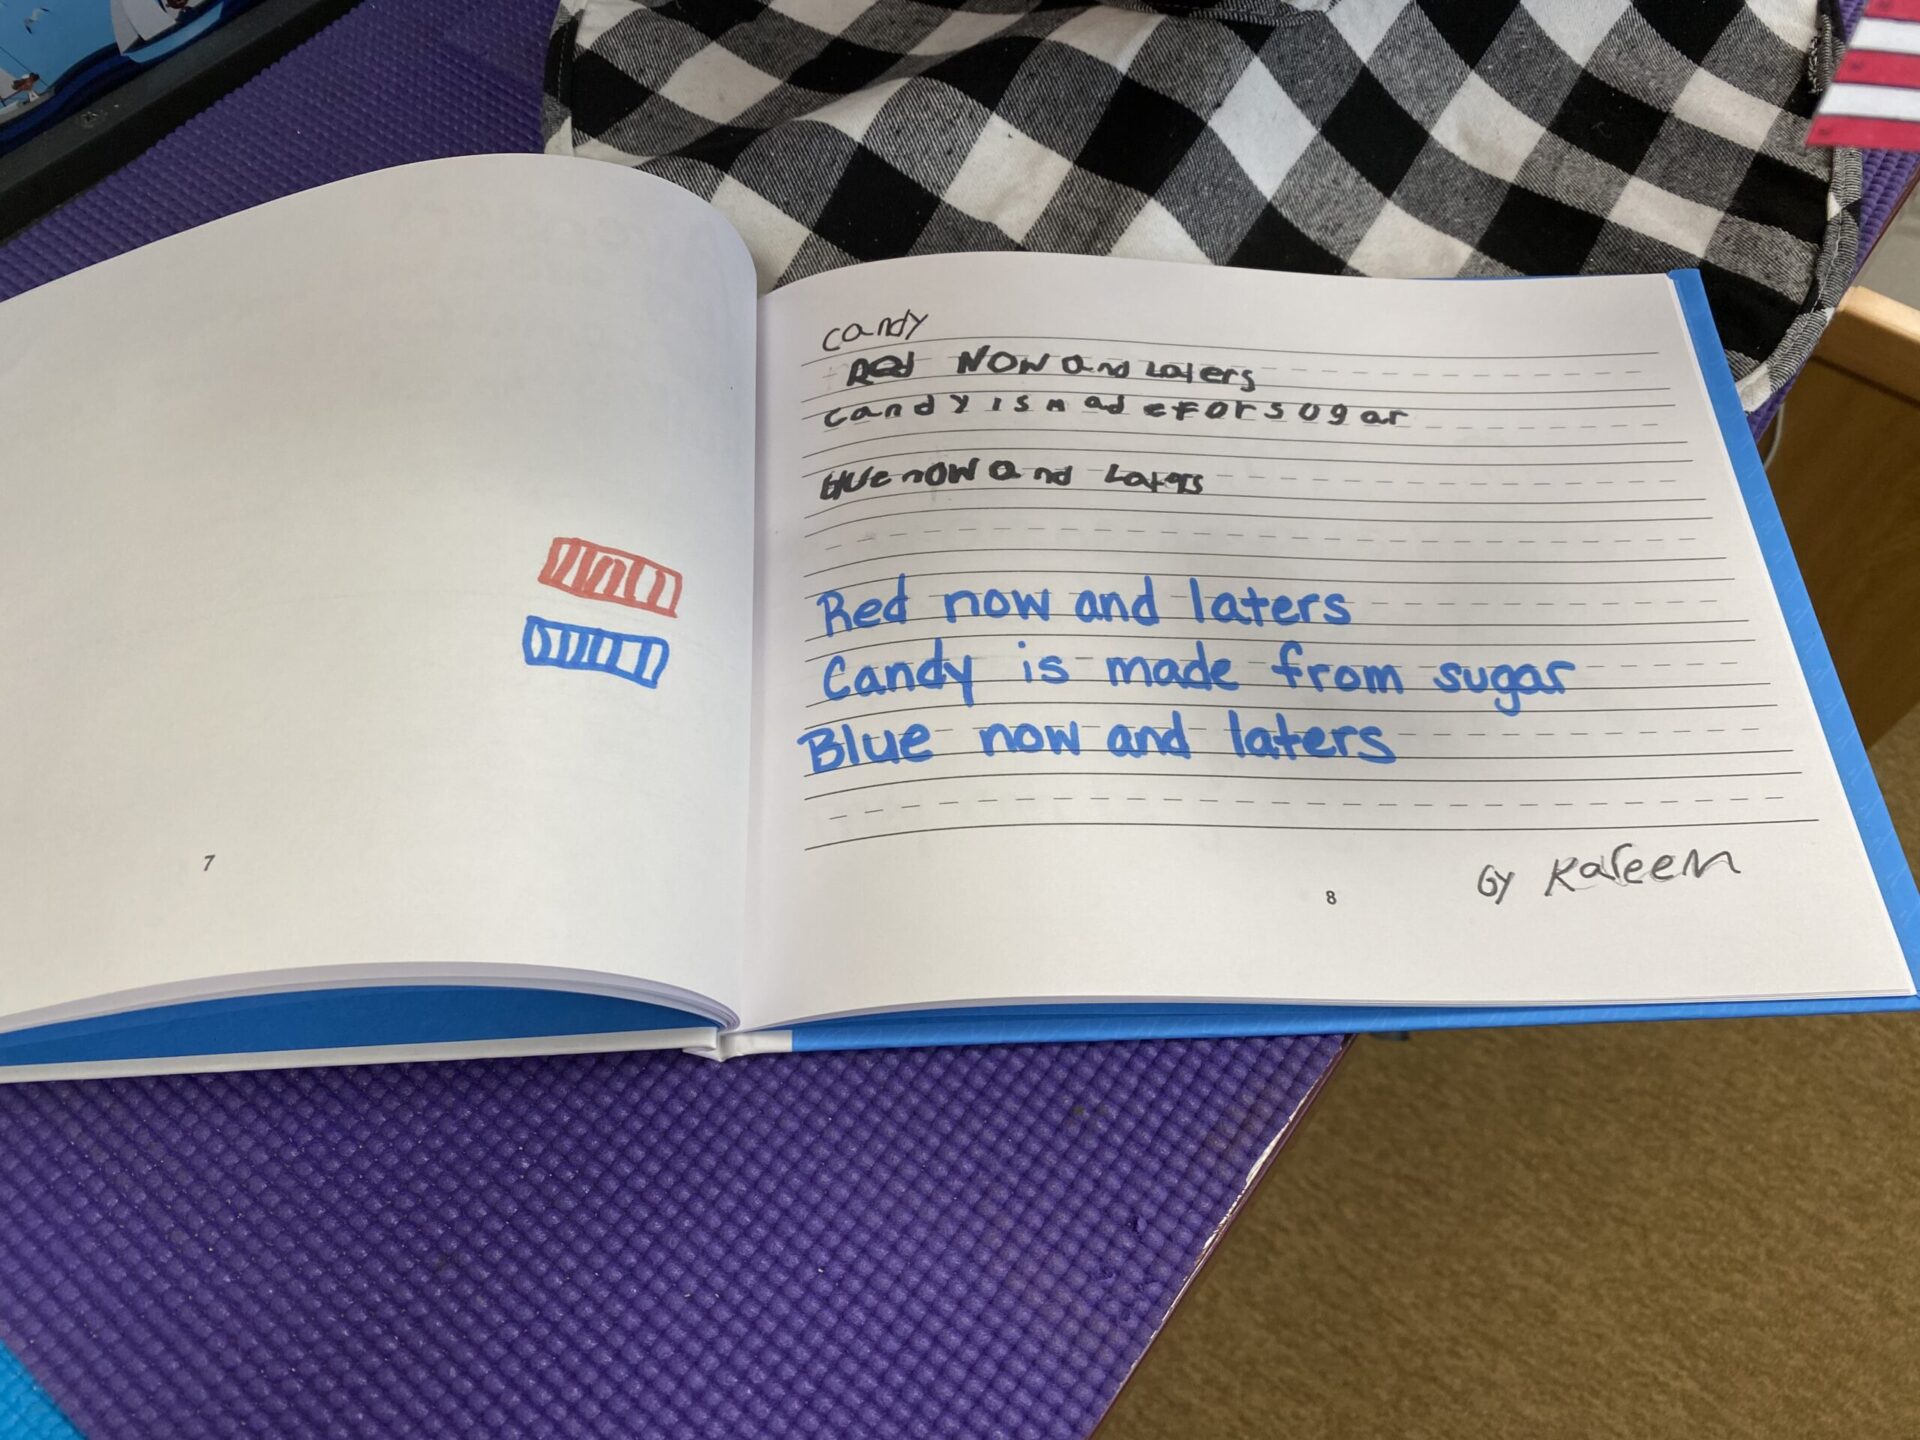 candy
Red NOW and Laters
candy is made For sugar
blue now and Laters
Red now and laters
Candy is made from sugar
Blue now and laters
7
8
By Kareem